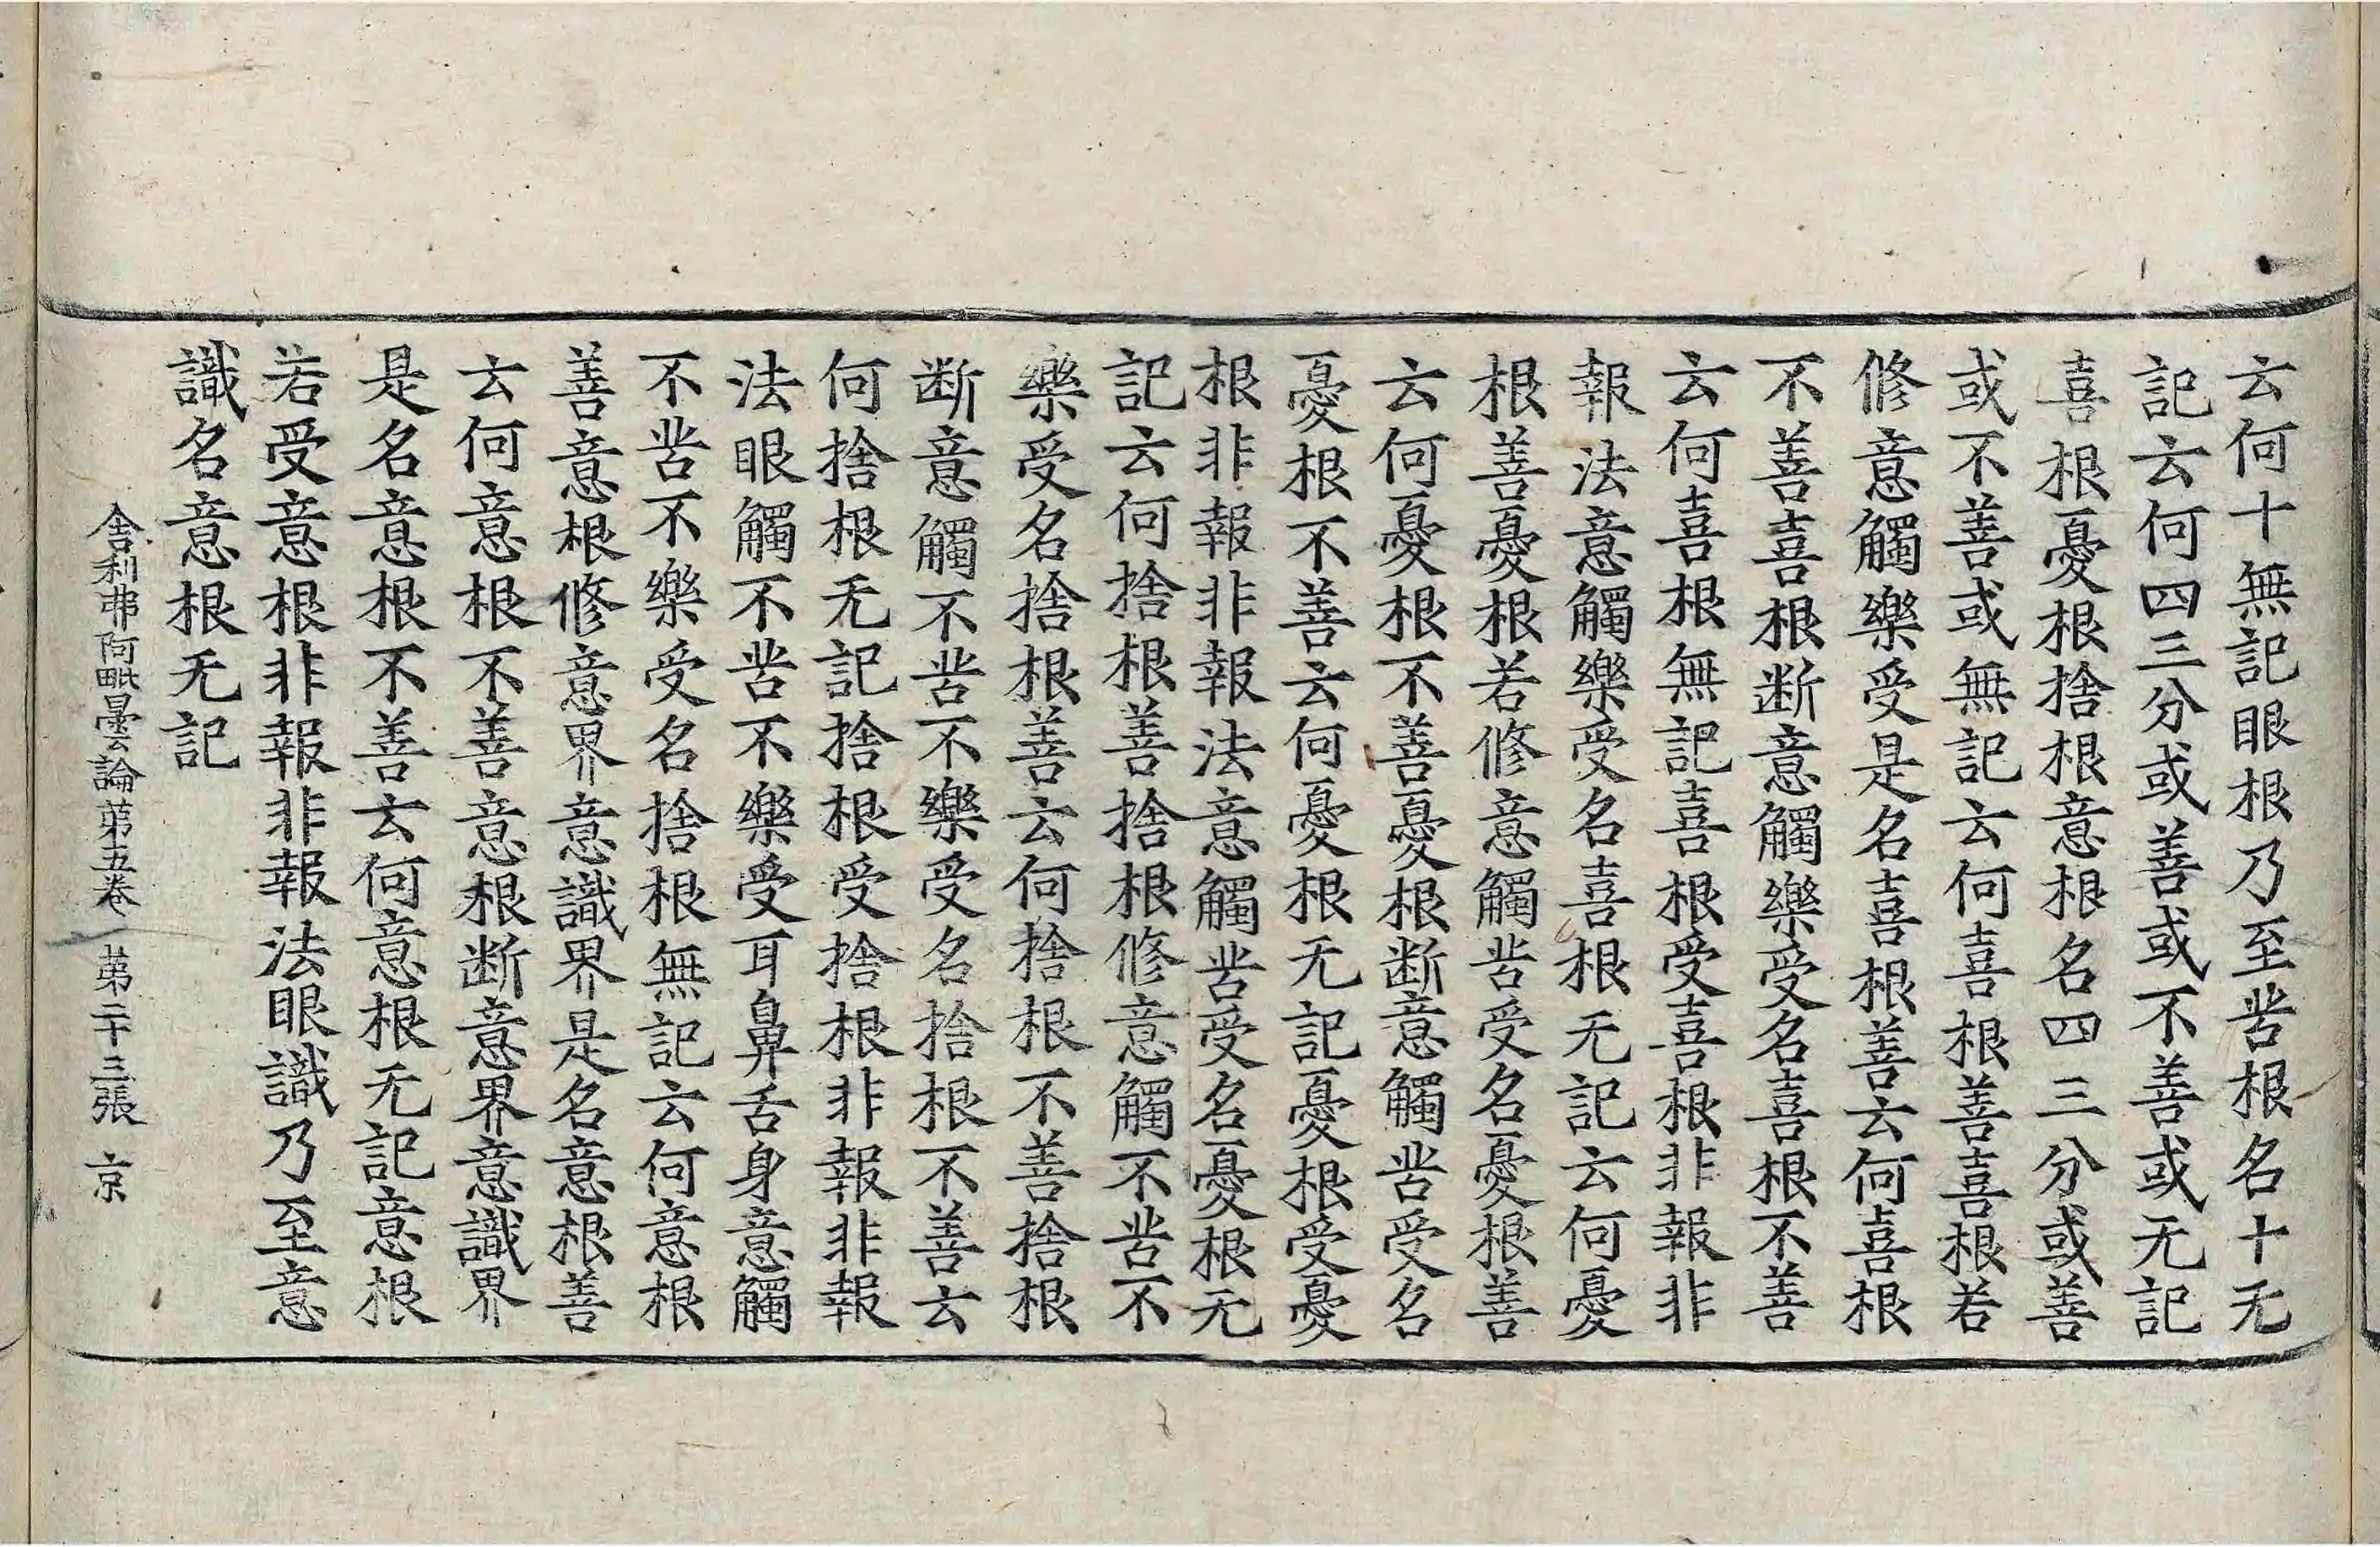 云何十無記眼根乃至苦根名十无
記云何四三分或善或不善或无記
喜根憂根捨根意根名四三分或善
或不善或無記云何喜根善喜根若
修意觸樂受是名喜根善云何喜根
不善喜根断意觸樂受名喜根不善
云何喜根無記喜根受喜根非報非
報法意觸樂受名喜根无記云何憂
根善憂根若修意觸苦受名憂根善
云何憂根不善憂根断意觸苦受名
憂根不善云何憂根无記憂根受憂
根非報非報法意觸苦受名憂根无
記云何捨根善捨根修意觸不苦不
樂受名捨根善云何捨根不善捨根
断意觸不苦不樂受名捨根不善云
何捨根无記捨根受捨根非報非報
法眼觸不苦不樂受耳鼻舌身意觸
不苦不樂受名捨根無記云何意根
善意根修意界意識界是名意根善
云何意根不善意根断意界意識界
是名意根不善云何意根无記意根
若受意根非報非報法眼識乃至意
識名意根无記
舍利弗阿毗曇論第五卷 第二十三張 京